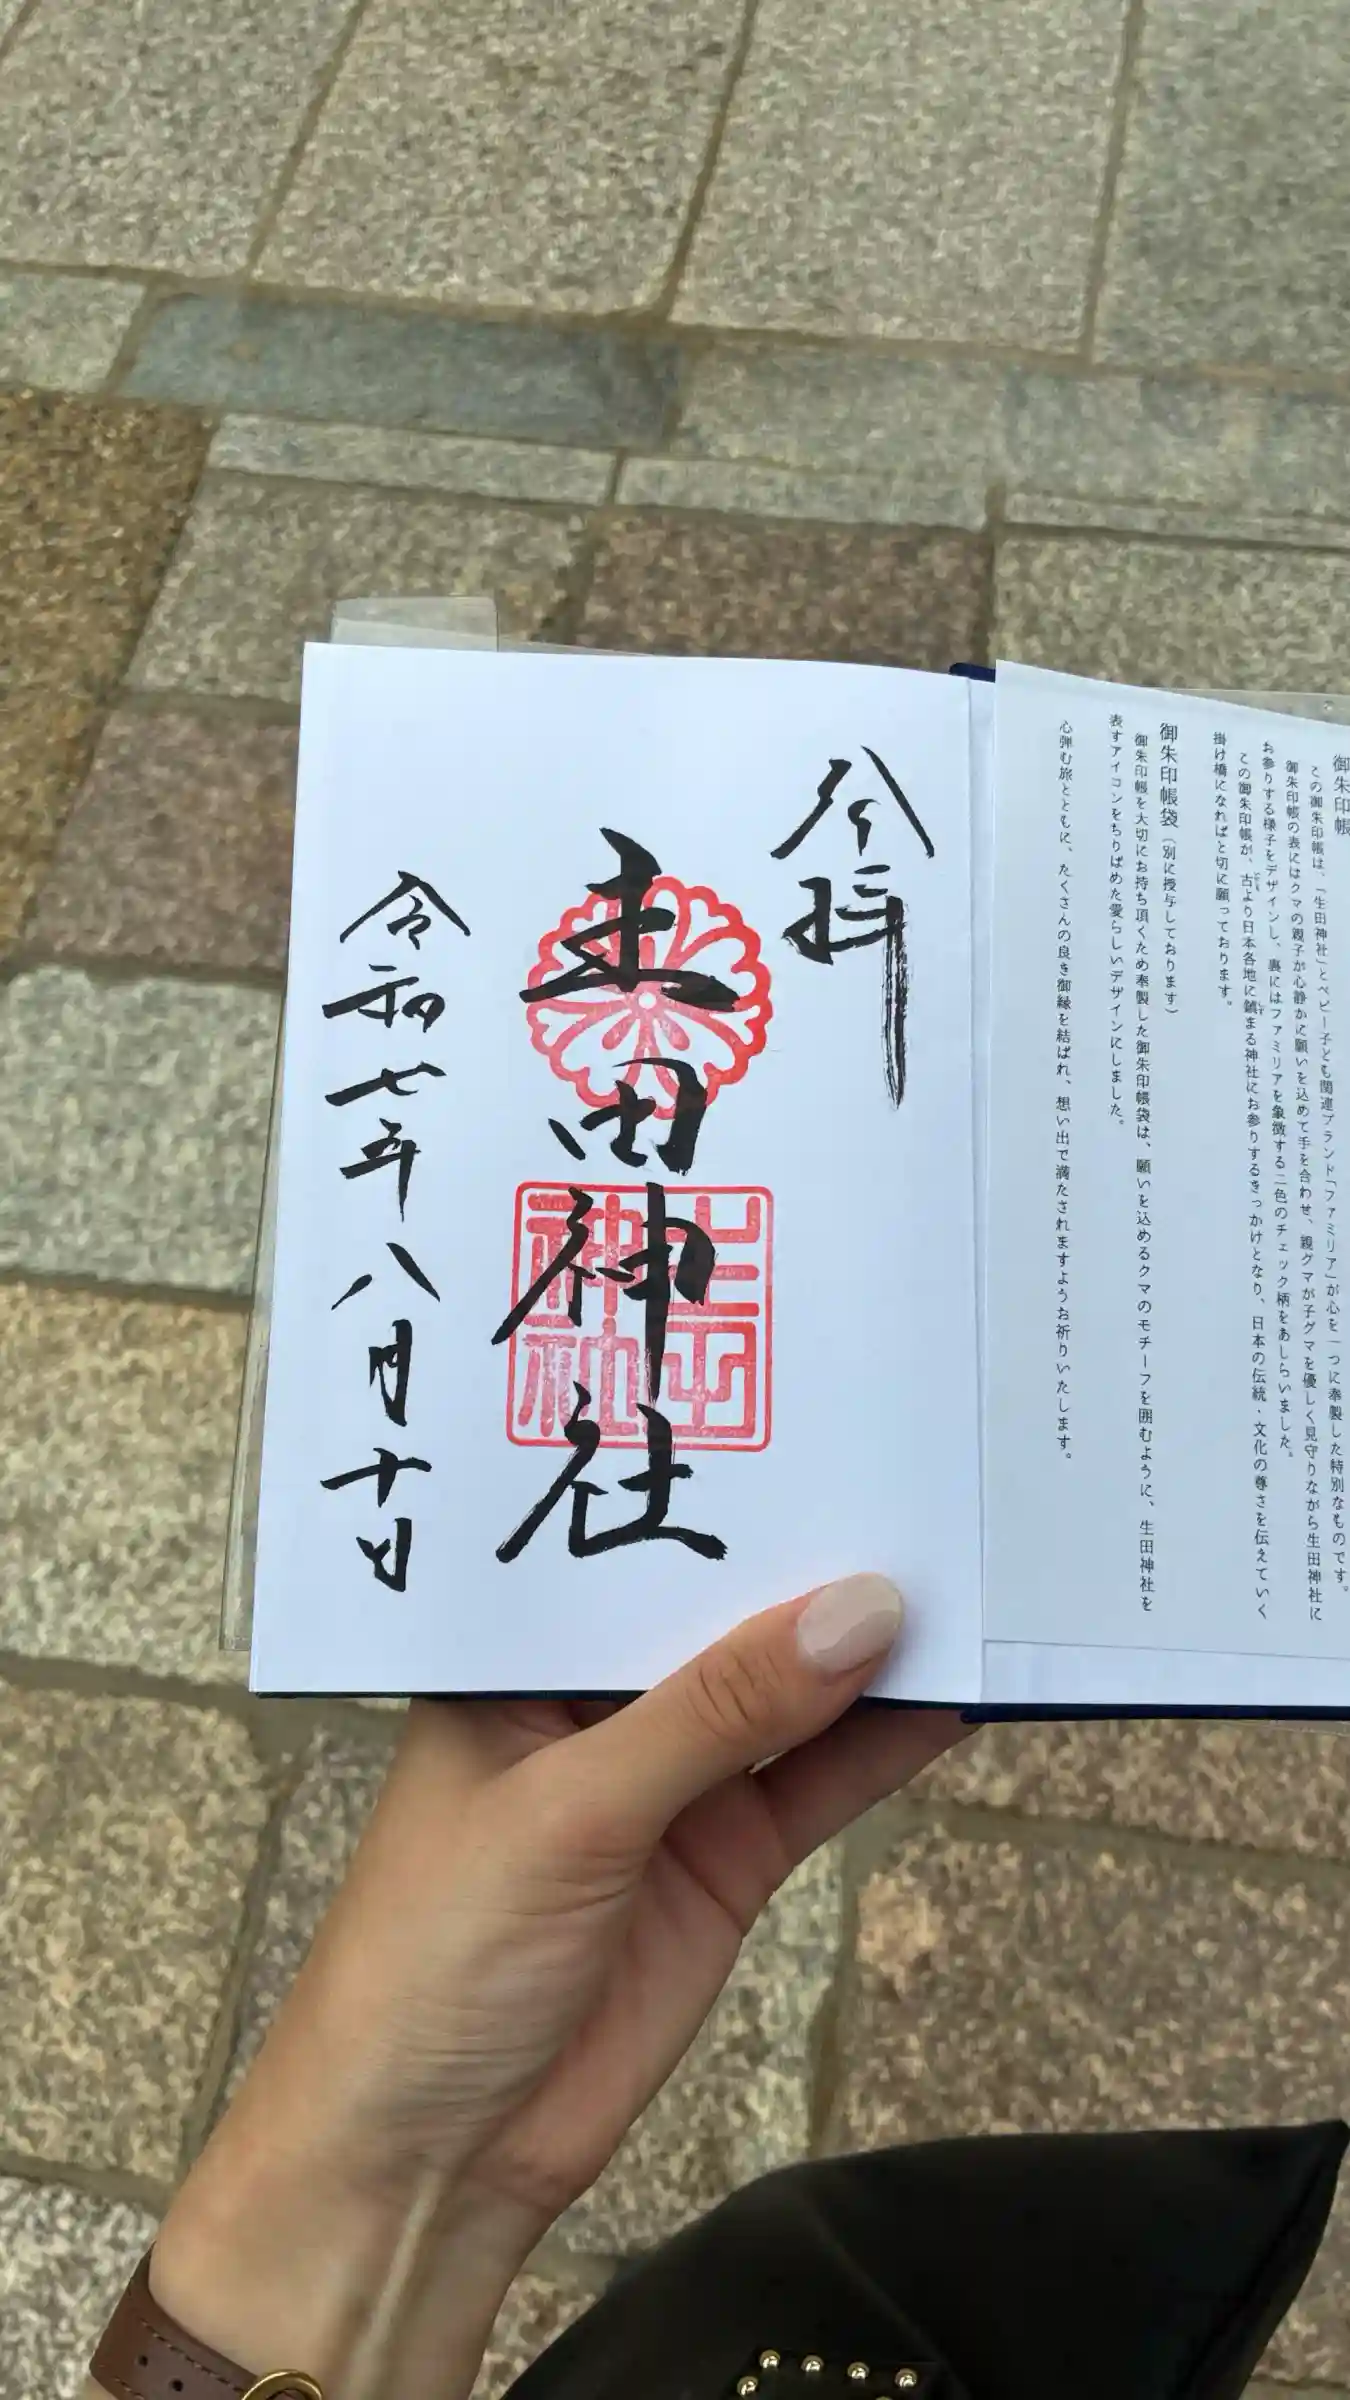 御朱印帳
この御朱印帳は、「生田神社」とベビー子ども関連ブランド「ファミリア」が心を一つに奉製した特別なものです。
御朱印帳の表にはクマの親子が心静かに願いを込めて手を合わせ、親グマが子グマを優しく見守りながら生田神社に
お参りする様子をデザインし、裏にはファミリアを象徴する二色のチェック柄をあしらいました。
この御朱印帳が、古より日本各地に鎮まる神社にお参りするきっかけとなり、日本の伝統・文化の尊さを伝えていく
掛け橋になればと切に願っております。
御朱印帳袋（別に授与しております）
御朱印帳を大切にお持ち頂くため奉製した御朱印帳袋は、願いを込めるクマのモチーフを囲むように、生田神社を
表すアイコンをちりばめた愛らしいデザインにしました。
心弾む旅とともに、たくさんの良き御縁を結ばれ、想い出で満たされますようお祈りいたします。
参拝
生田神社
生田
神社
令和七年八月十日